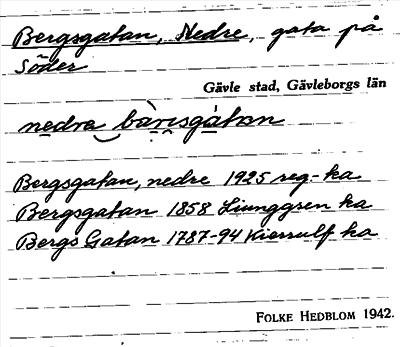 Bergsgatan, Nedre, gata på
Söder
Gävle stad, Gävleborgs län
nedra bàrisgátan
Bergsgatan, nedre 1925 reg.-ka
Bergsgatan 1858 Ljunggren ka
Bergs Gatan 1787-94 Kierrulf ka
FOLKE HEDBLOM 1942.